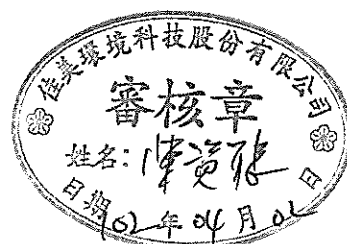 佳美環境科技股份有限公司
審核章
姓名：陳
日期102年04月02日